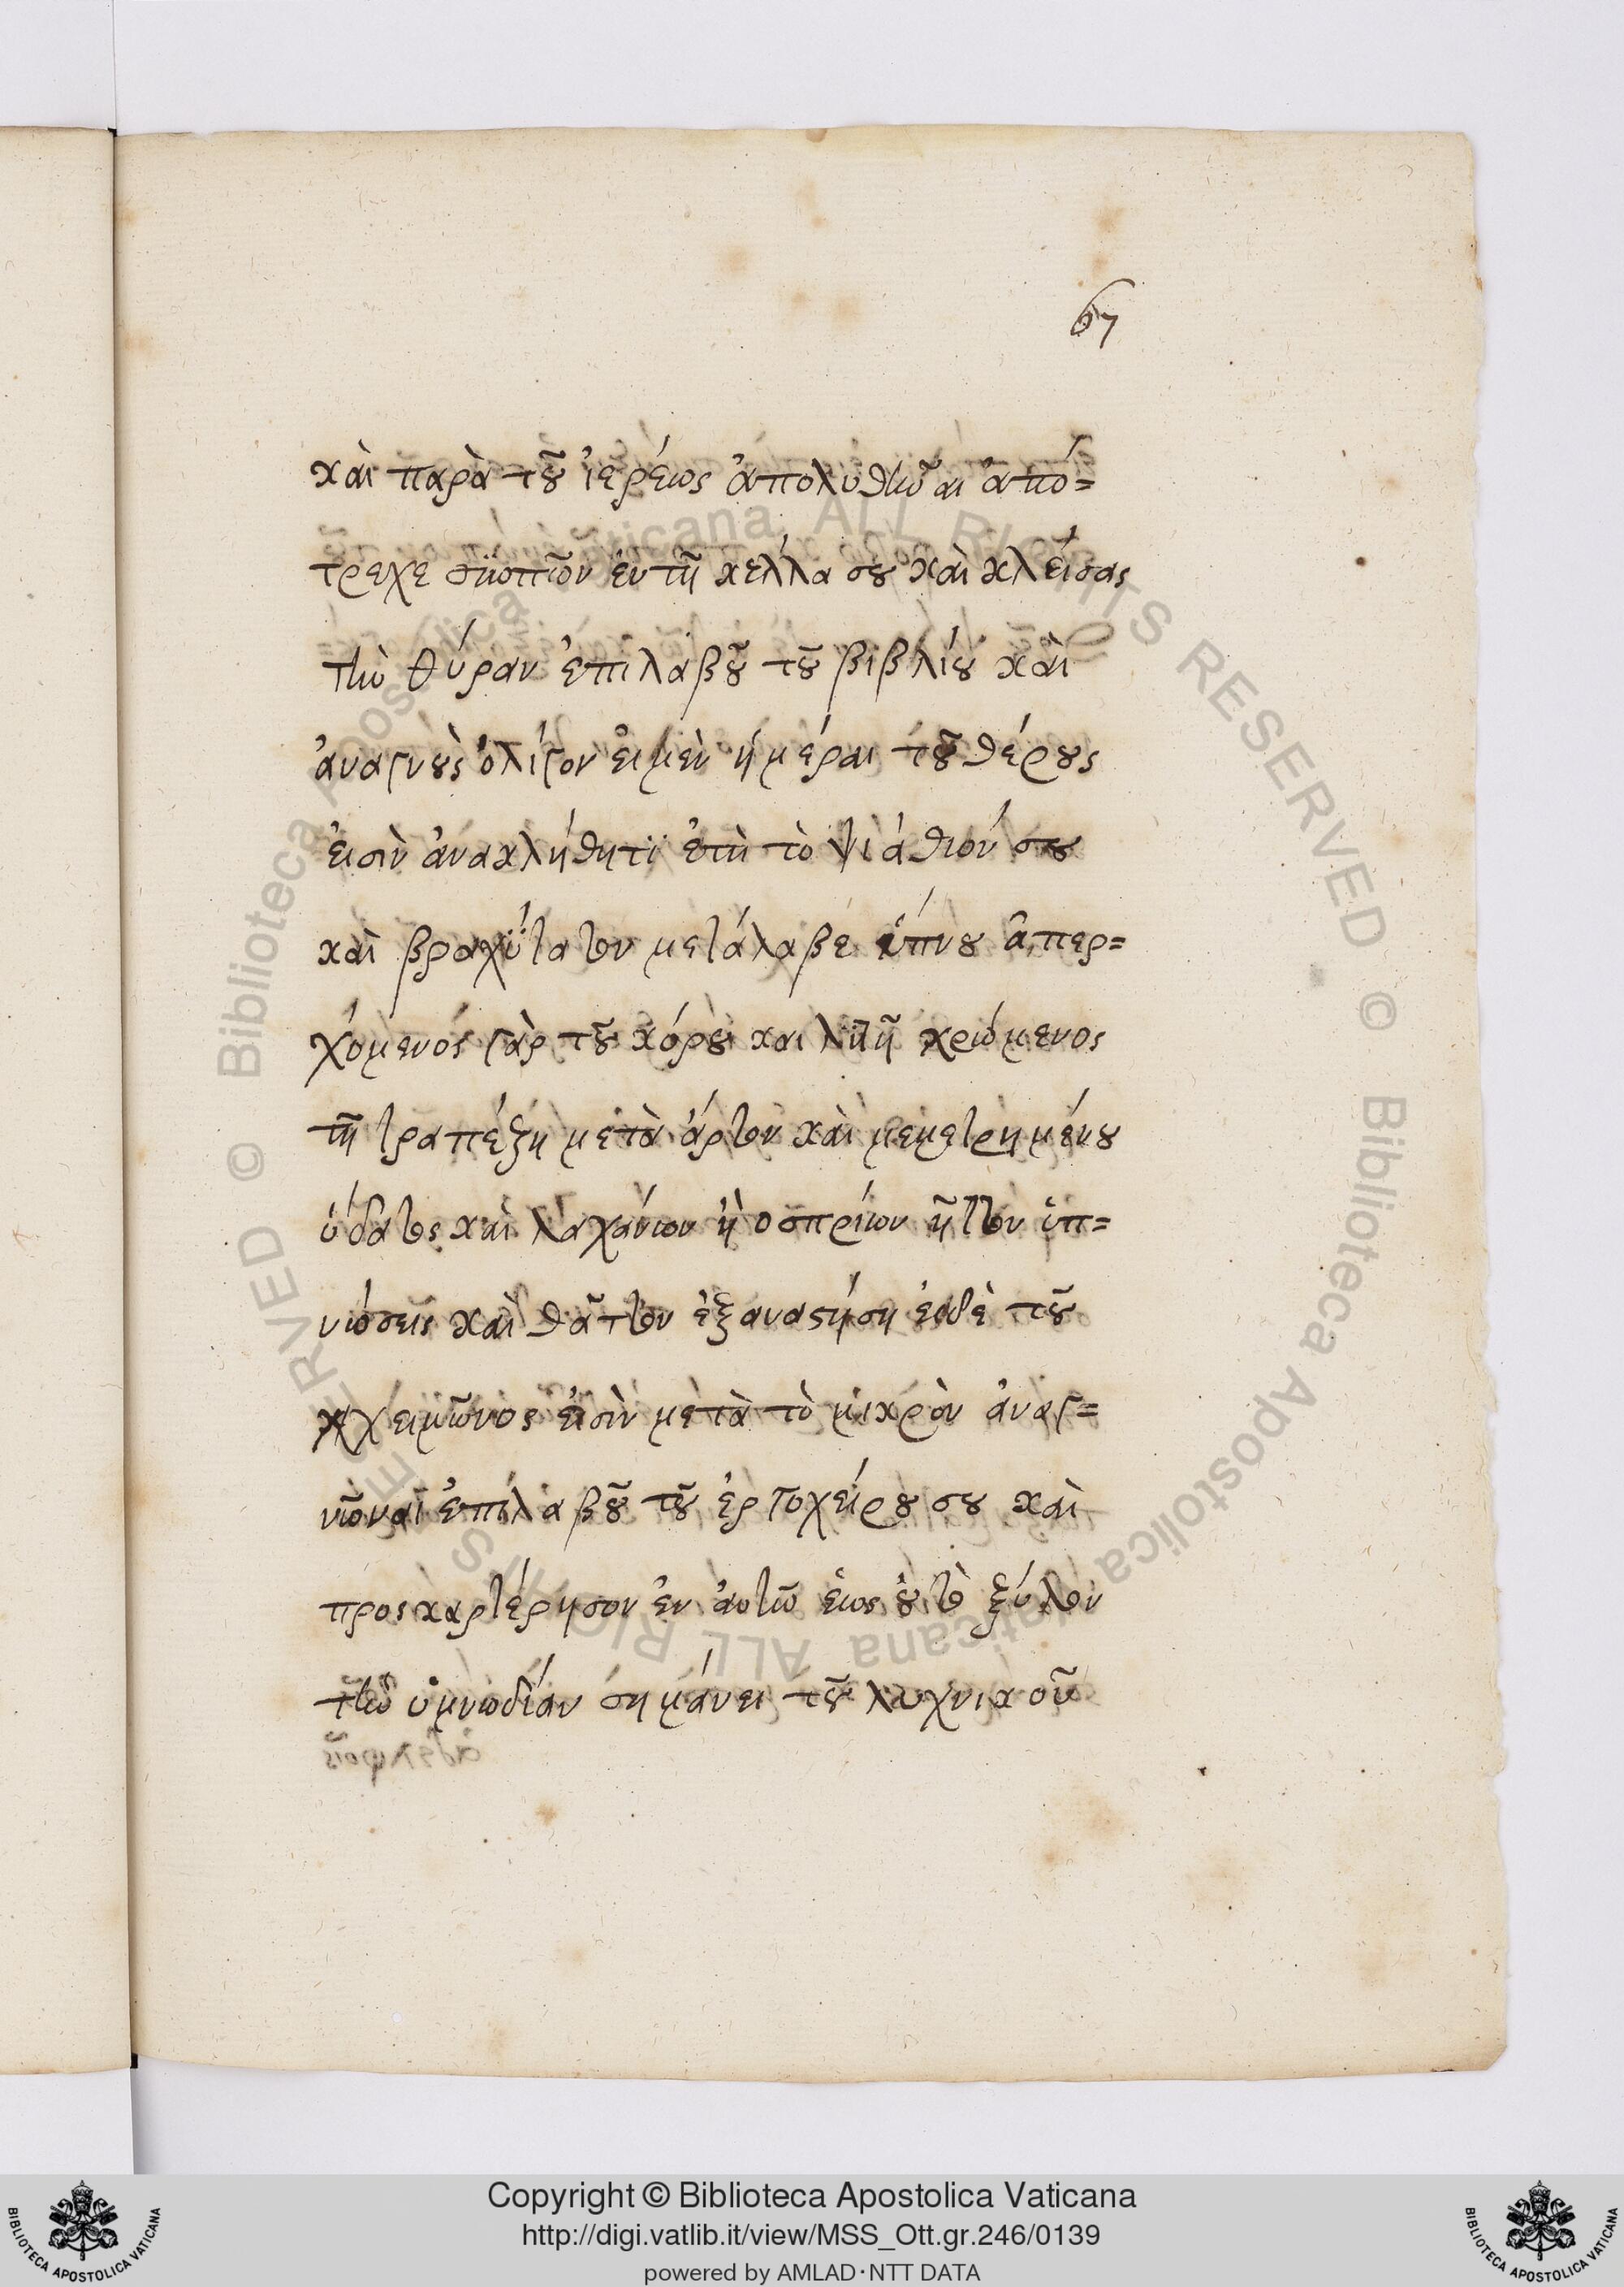 67
καὶ παρὰ τοῦ ἱερέως ἀπολυθῆναι ἀπό=
τρεχε σιωπῶν ἐν τῆ κέλλα σου καὶ κλείσας
τὴν θύραν ἐπιλαβοῦ τοῦ βιβλίου καὶ
ἀναγνοὺς ὀλίγον εἰ μὲν ἡμέραι τοῦ θέρους
εἰσὶν ἀνακλήθητι ἐπὶ τὸ ψιάθιόν σου
καὶ βραχύτατον μετάλαβε ὕπνου ἀπερ=
χόμενός γὰρ τοῦ κόρου και λιτῆ χρώμενος
τῆ τραπέζη μετὰ ἄρτον καὶ μεμετρημένου
ὕδατος καὶ λαχάνων ἢ οσπρίων ἧττον ὑπ=
νώσεις καὶ θᾶττον ἐξαναστήση εἰ δὲ τοῦ
χειμῶνος εἰσὶν μετὰ τὸ μικρὸν ἀναγ=
νῶναι ἐπιλαβοῦ τοῦ ἐργοχείρου σου καὶ
προςκαρτέρησον ἐν ἀυτῶ ἕως οὗ τὸ ξύλον
τὴν ὑμνωδίαν σημάνει τοῦ λυχνικοῦ
Copyright © Biblioteca Apostolica Vaticana
http://digi.vatlib.it/view/MSS_Ott.gr.246/0139
powered by AMLAD·NTT DATA
BIBLIOTECA APOSTOLICA VATICANA
BIBLIOTECA APOSTOLICA VATICANA
© Biblioteca Apostolica Vaticana ALL RIGHTS RESERVED © Biblioteca Apostolica Vaticana ALL RIGHTS RESERVED